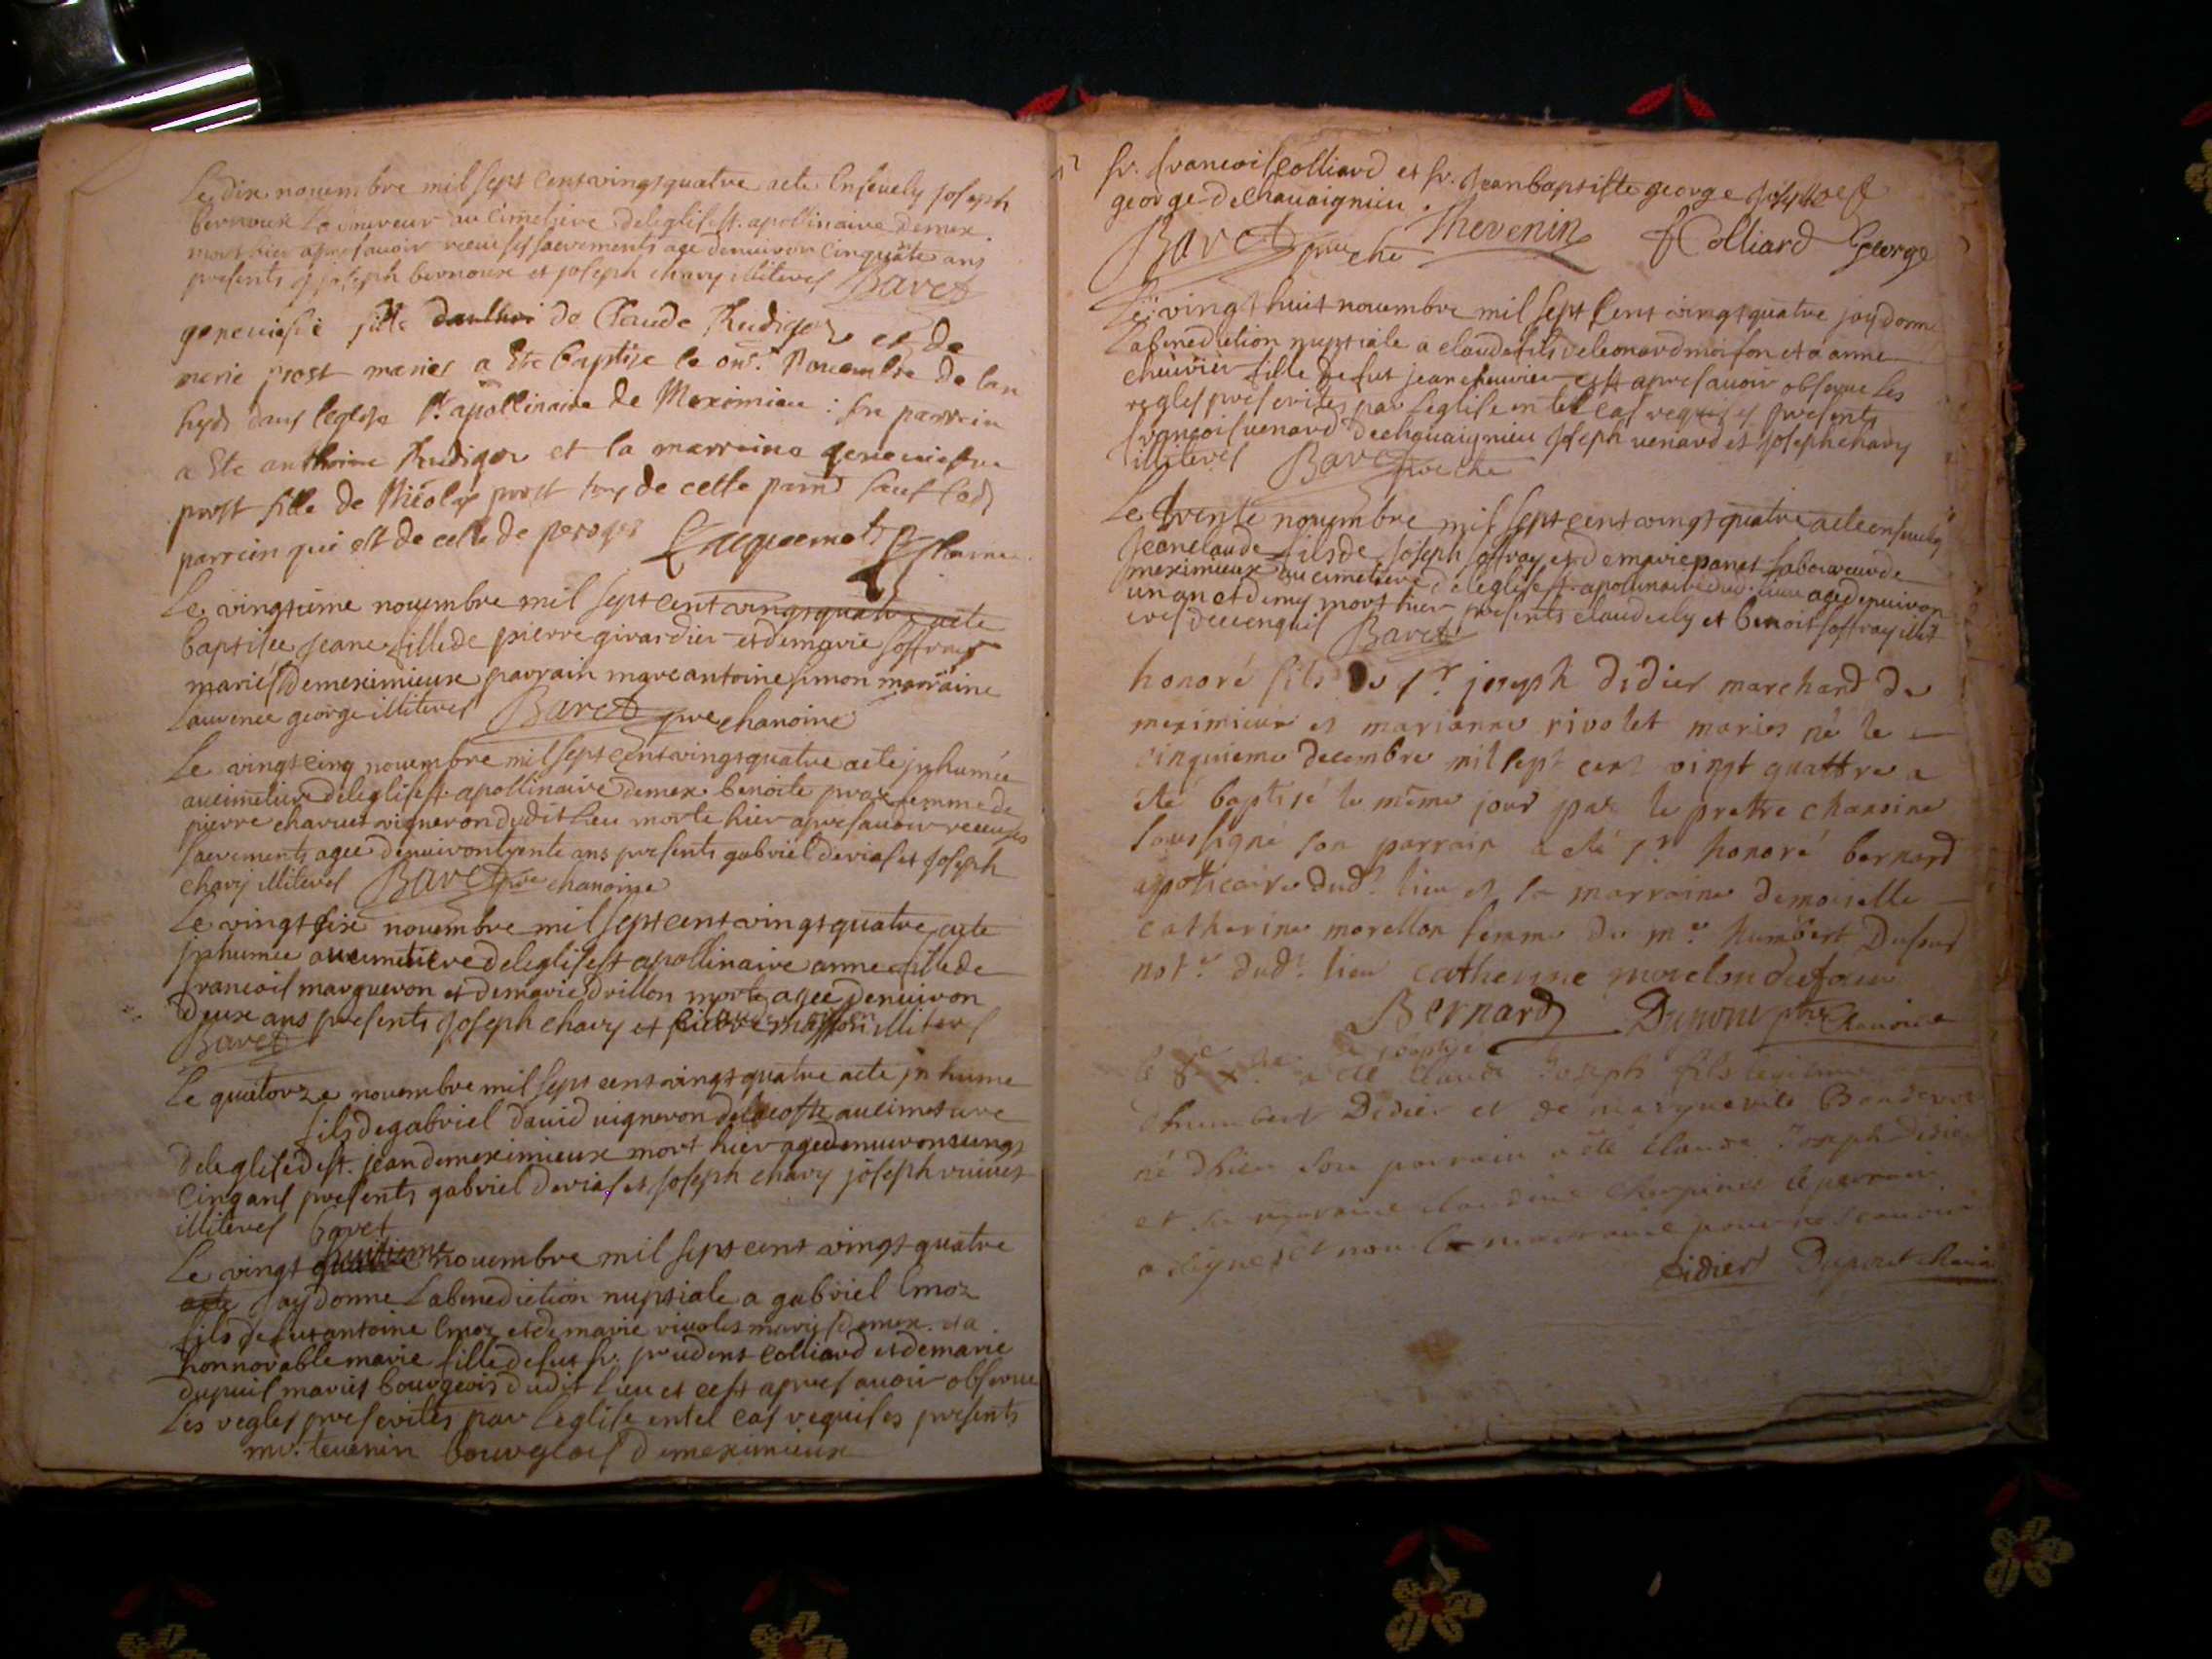 Le dix nouembre mil sept cent vingt quatre a ete enseuely joseph
bernoux Laboureur au cimetiere de leglise st. apollinaire de mex.
mort hier apres auoir receu ses sacrements age denuiron cinquãte ans
presents joseph bernoux et joseph chavy illiteres Baret
geneuiefue fille de Claude Rudigoz et de
marie prost mariés a Ete baptisé le onz. Nouembre de lan
dans leglise st apollinaire de Meximieu : son parrein
a Ete anthoine Rudigoz et la marreine geneuiefue
prost fille de Nicolas prost tous de cette parr. sauf lod
parrein qui est de celle de peroges Jacquemet
Le vingtieme nouembre mil sept cent vingt quatre a ete
baptisee jeane fille de pierre girardier et de marie joffray
mariés de meximieux parrain marc antoine simon marraine
Laurence george illiteres Baret pre chanoine
Le vingt cinq nouembre mil sept cent vingt quatre a ete jnhumée
au cimetiere de leglise st. apollinaire de mex. benoite prax femme de
pierre charuet vigneron dudit lieu morte hier apres auoir receu ses
sacrements agee denuiron trente ans presents gabriel derias et joseph
chavy illiteres Baret pre chanoine
Le vingt six nouembre mil sept cent vingt quatre a ete
jnhumee au cimetiere de leglise st apollinaire anne fille de
francois margueron et de marie drillon morte agee denuiron
deux ans presents joseph chavy et illiteres
Baret
Le quatorze nouembre mil sept cent vingt quatre a ete jnhume
fils de gabriel dauid vigneron de la coste au cimetiere
de leglise de st. jean de meximieux mort hier age denuiron vingt
cinq ans presents gabriel derias et joseph chavy joseph viuiet
illiteres baret
Le vingt huitieme nouembre mil sept cent vingt quatre
jay donne La benediction nuptiale a gabriel Emoz
fils de fut antoine Emoz et de marie riuolet mariés de mex. et a
honnorable marie fille de fut sr. prudent colliard et de marie
dupuis mariés bourgeois dudit Lieu et cest apres auoir obserue
Les regles prescrites par Leglise en tel cas requises presents
mr. teuenin bourgeois de meximieux
sr. francois Colliard et sr. jean baptiste george
george de chauaignieu.
Baret pre che Thevenin FColliard George
Le vingt huit nouembre mil sept cent vingt quatre jay donne
La benediction nuptiale a claude fils de leonard moison et a anne
cheuvier fille de fut jean cheuvier cest apres auoir obserue Les
regles prescrites par Leglise en tel cas requises presents
francois uenard de chauaignieu joseph uenard et joseph chavy
illiteres Baret pre che
Le trente nouembre mil sept cent vingt quatre a ete enseuely
jean claude fils de joseph joffray et de marie panet Laboureur de
meximieux au cimetiere de leglise st. apollinaire dud. lieu age denuiron
un an et demy mort hier presents claude ely et benoit joffray illit
eres de ce enquis Baret
honoré fils de sr. joseph didier marchand de
meximieux et marianne rivolet mariés né le
cinquieme decembre mil sept cent vingt quattre a
été baptisé le même jour par le prettre chanoine
soussigné son parrain a été sr. honoré bernard
apoticaire dudt. lieu et la marraine demoiselle
catherine morellon femme de me. humbert Dufour
note. dudt. lieu catherine morelon dufour
Bernard Dupont pbre Chanoine
le 8e xbre a été baptisé claude Joseph fils legitime
d'humbert Didier et de marguerite
né d'hier son parrain a été claude Joseph Didier
et sa marraine le parrain
a signé et non la marraine pour ne scauoir
Didier Dupont chanoi